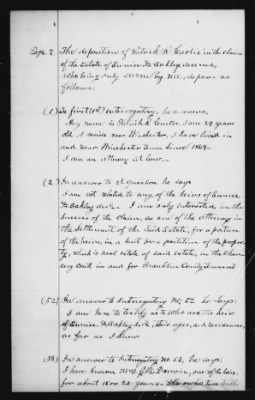 Page 2. The deposition of Patrick H. Carlin in the claim
of the Estate of Eunice H. Oakley deceas.
who being duly sworn by me, deposes as
follows:
(1) To first Int. Interrogatory, he answers.
My name is Patrick H. Carlin. I am 28 years
old. I reside near Winchester. I have lived in
and near Winchester Tenn since 1869.
I am an attorney at law.
(2) In answer to 2d question he says
I am not related to any of the heirs of Eunice
H. Oakley decd. I am only interested in the
success of the claim, as one of the attorneys in
the settlement of the said Estate, for a portion
of the heirs, in a suit for a partition of the proper-
ty, which is real estate of said estate, in the chan-
cery court in and for Franklin County Tennessee
(52) In answer to Interrogatory No. 52 he says:
I am here to testify as to who are the heirs
of Eunice H. Oakley decd, their ages, and residences,
as far as I know
(53) In answer to Interrogatory No 53, he says,
I have known Mrs. one of the heirs,
for about years.